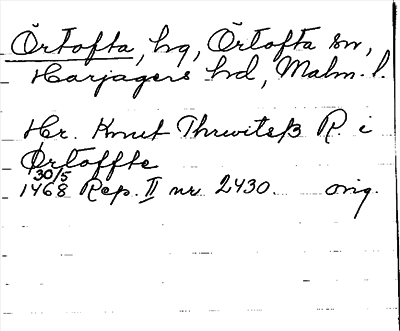 Örtofta, hg, Örtofta sn,
Harjagers hd, Malm. l.
Hr. Knut Thrwitsß R. i
Ørtoffte
30/5
1468 Rep. II nr 2430. orig.